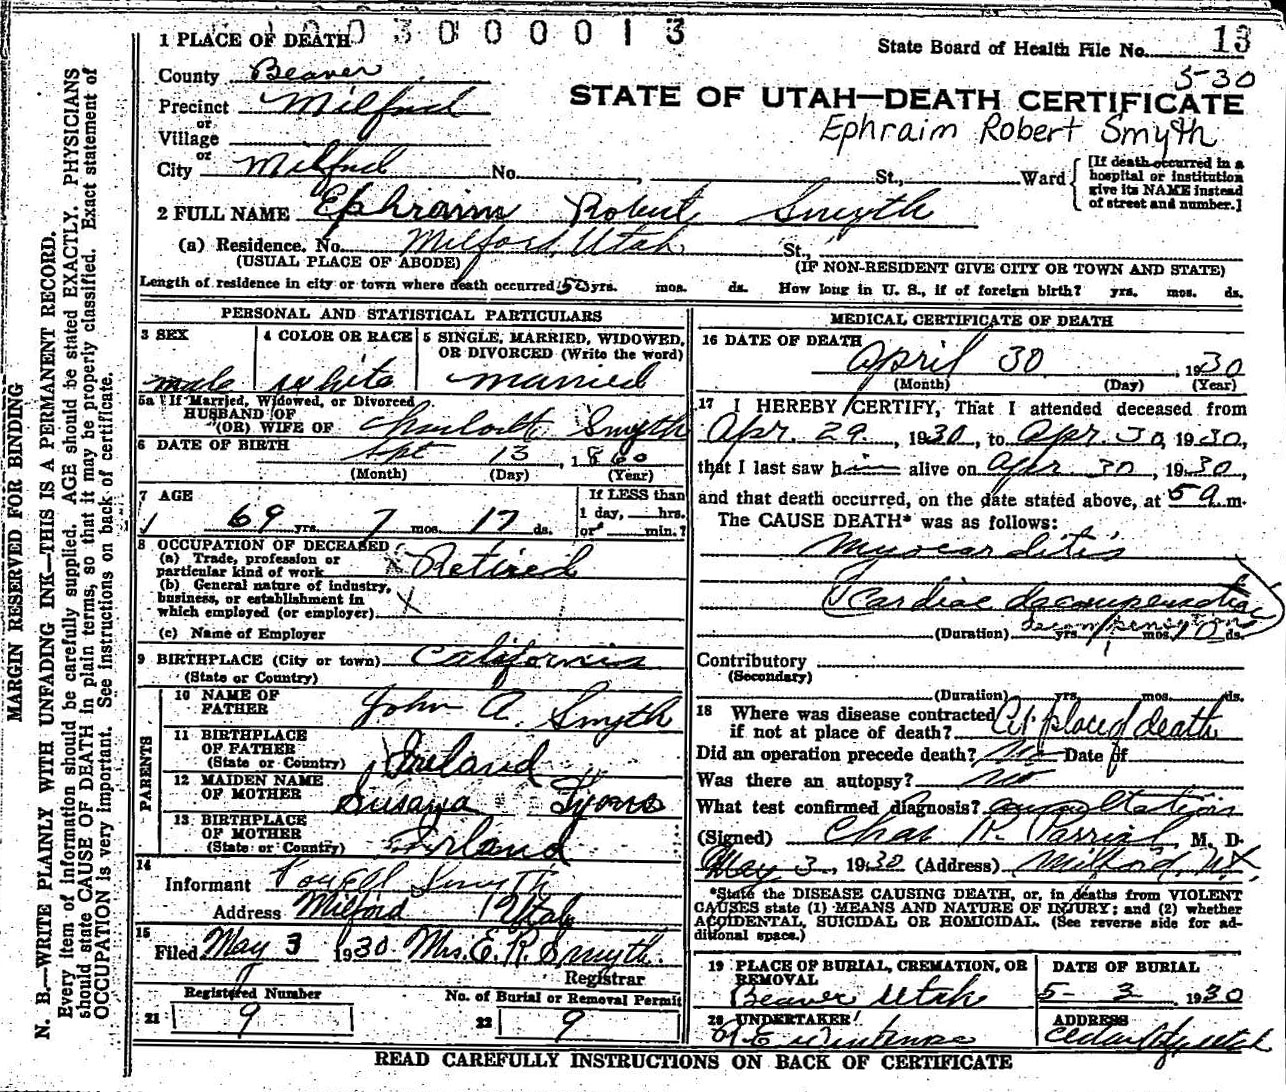 0 3 0 0 0 0 1 3
1 PLACE OF DEATH
State Board of Health File No. 13
County Beaver
5-30
Precinct Milford
STATE OF UTAH—DEATH CERTIFICATE
or
Village
Ephraim Robert Smyth
or
City Milford No. , St., Ward
[If death occurred in a hospital or institution give its NAME instead of street and number.]
2 FULL NAME Ephraim Robert Smyth
(a) Residence. No. Milford, Utah St.,
(USUAL PLACE OF ABODE) (IF NON-RESIDENT GIVE CITY OR TOWN AND STATE)
Length of residence in city or town where death occurred 50 yrs. mos. ds. How long in U. S., if of foreign birth? yrs. mos. ds.
PERSONAL AND STATISTICAL PARTICULARS
3 SEX 4 COLOR OR RACE 5 SINGLE, MARRIED, WIDOWED,
OR DIVORCED (Write the word)
male white married
5a If Married, Widowed, or Divorced
HUSBAND OF
(OR) WIFE OF Smyth
6 DATE OF BIRTH Sept 13, 1860
(Month) (Day) (Year)
7 AGE If LESS than
1 day, hrs.
69 yrs. 7 mos. 17 ds. or min.?
8 OCCUPATION OF DECEASED
(a) Trade, profession or
particular kind of work Retired
(b) General nature of industry,
business, or establishment in
which employed (or employer)
(c) Name of Employer
9 BIRTHPLACE (City or town) California
(State or Country)
PARENTS
10 NAME OF
FATHER John A. Smyth
11 BIRTHPLACE
OF FATHER
(State or Country) Ireland
12 MAIDEN NAME
OF MOTHER Susana Lyons
13 BIRTHPLACE
OF MOTHER
(State or Country) Irland
14
Informant Smyth
Address Milford Utah
15
Filed May 3 1930 Mrs. E. R. Smyth
Registrar
Registered Number No. of Burial or Removal Permit
21 9 22 9
MEDICAL CERTIFICATE OF DEATH
16 DATE OF DEATH
April 30, 1930
(Month) (Day) (Year)
17 I HEREBY CERTIFY, That I attended deceased from
Apr. 29, 1930, to Apr. 30, 1930,
that I last saw him alive on Apr 30, 1930,
and that death occurred, on the date stated above, at 5 a m.
The CAUSE DEATH* was as follows:
Myocarditis
Cardiac decompensation
(Duration) yrs. mos. 10 ds.
Contributory
(Secondary)
(Duration) yrs. mos. ds.
18 Where was disease contracted
if not at place of death? At place of death
Did an operation precede death? No Date of
Was there an autopsy? No
What test confirmed diagnosis? auscultation
(Signed) Chas R. Parrish, M. D.
May 3, 1930 (Address) Milford, Ut.
*State the DISEASE CAUSING DEATH, or, in deaths from VIOLENT
CAUSES state (1) MEANS AND NATURE OF INJURY; and (2) whether
ACCIDENTAL, SUICIDAL OR HOMICIDAL. (See reverse side for ad-
ditional space.)
19 PLACE OF BURIAL, CREMATION, OR
REMOVAL DATE OF BURIAL
Beaver Utah 5-3 1930
20 UNDERTAKER ADDRESS
Cedar City Utah
READ CAREFULLY INSTRUCTIONS ON BACK OF CERTIFICATE
MARGIN RESERVED FOR BINDING
N. B.—WRITE PLAINLY WITH UNFADING INK—THIS IS A PERMANENT RECORD.
Every item of information should be carefully supplied. AGE should be stated EXACTLY. PHYSICIANS
should state CAUSE OF DEATH in plain terms, so that it may be properly classified. Exact statement of
OCCUPATION is very important. See instructions on back of certificate.